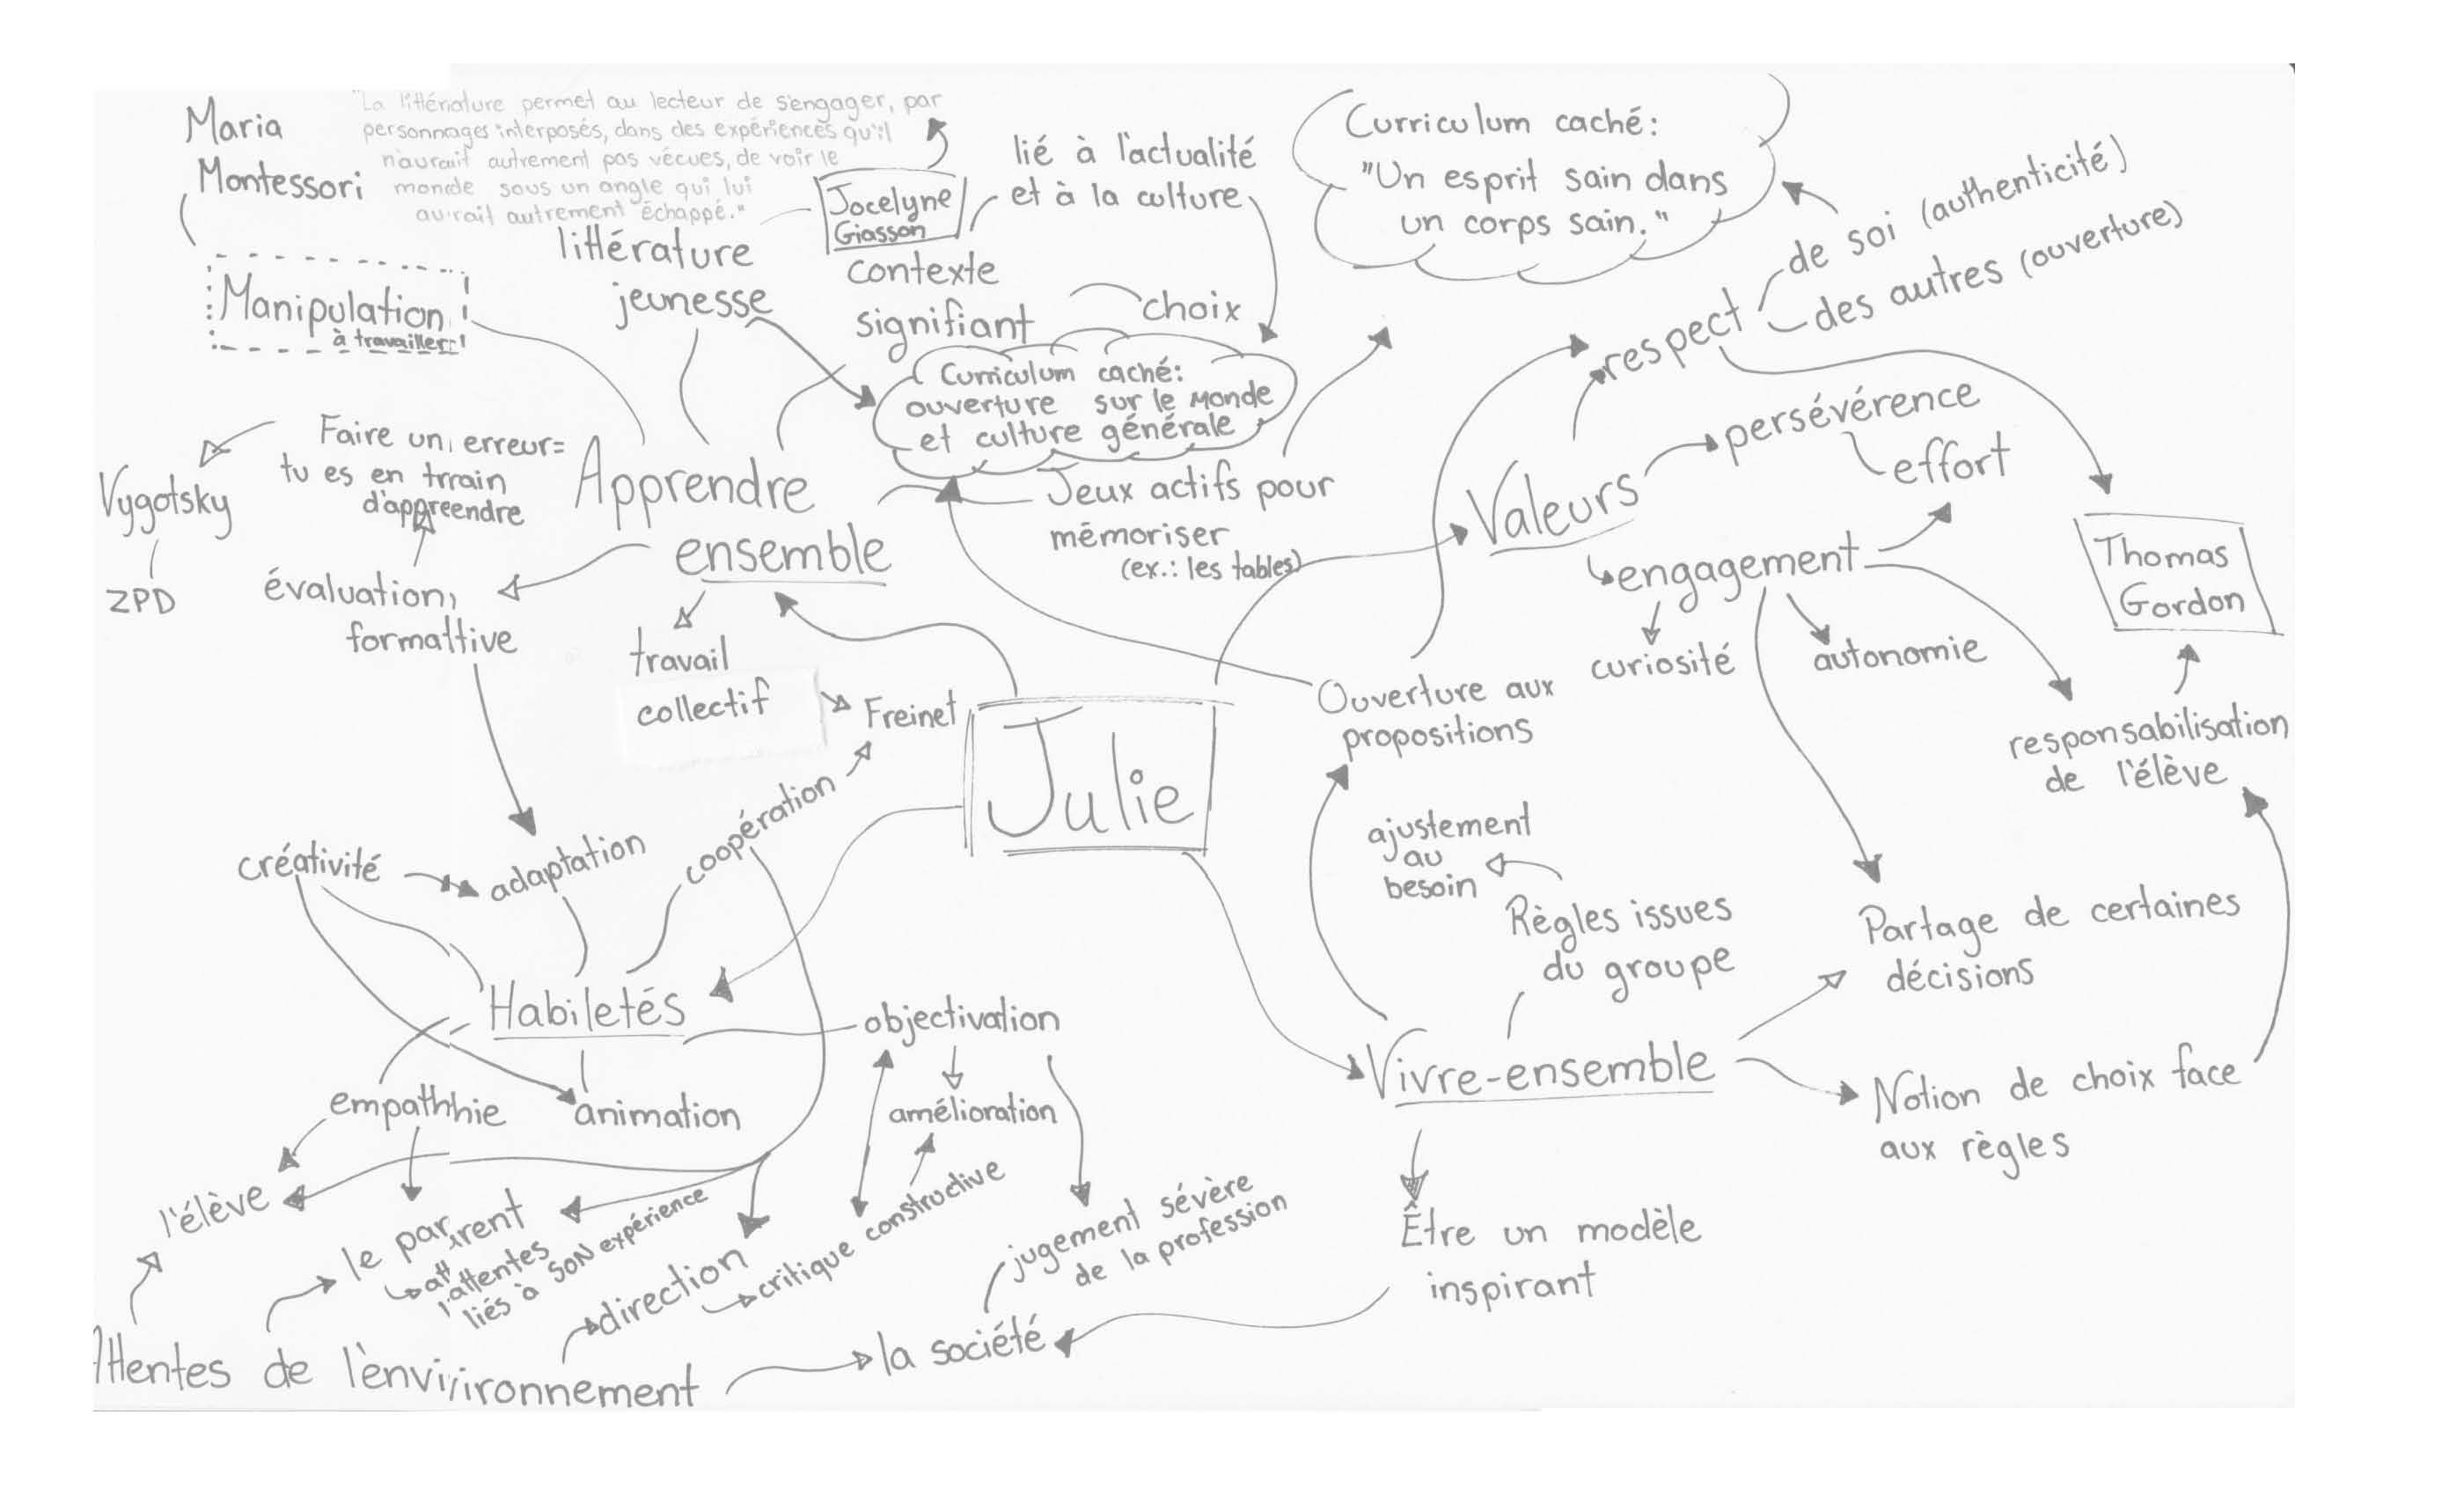 Maria
Montessori
"La littérature permet au lecteur de s'engager, par
personnages interposés, dans des expériences qu'il
n'aurait autrement pas vécues, de voir le
monde sous un angle qui lui
aurait autrement échappé."
Jocelyne
Giasson
lié à l'actualité
et à la culture
Curriculum caché:
"Un esprit sain dans
un corps sain."
de soi (authenticité)
des autres (ouverture)
respect
Manipulation
à travailler!
littérature
jeunesse
contexte
signifiant
choix
Curriculum caché:
ouverture sur le monde
et culture générale
persévérence
effort
Valeurs
Vygotsky
ZPD
Faire un erreur=
tu es en trrain
d'appreendre
Apprendre
ensemble
Jeux actifs pour
mémoriser
(ex.: les tables)
engagement
curiosité
autonomie
Thomas
Gordon
évaluation
formattive
travail
collectif
Freinet
Julie
Ouverture aux
propositions
responsabilisation
de l'élève
créativité
adaptation
coopération
ajustement
au
besoin
Règles issues
du groupe
Partage de certaines
décisions
Habiletés
objectivation
Vivre-ensemble
Notion de choix face
aux règles
empathhie
animation
amélioration
l'élève
le parrent
att
l'attentes
liés à SON expérience
direction
critique constructive
jugement sévère
de la profession
Être un modèle
inspirant
Attentes de l'enviironnement
la société